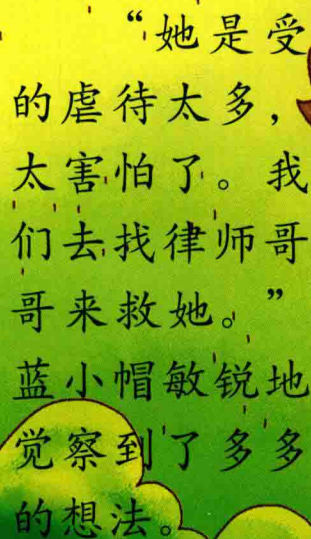 “她是受
的虐待太多，
太害怕了。我
们去找律师哥
哥来救她。”
蓝小帽敏锐地
觉察到了多多
的想法。